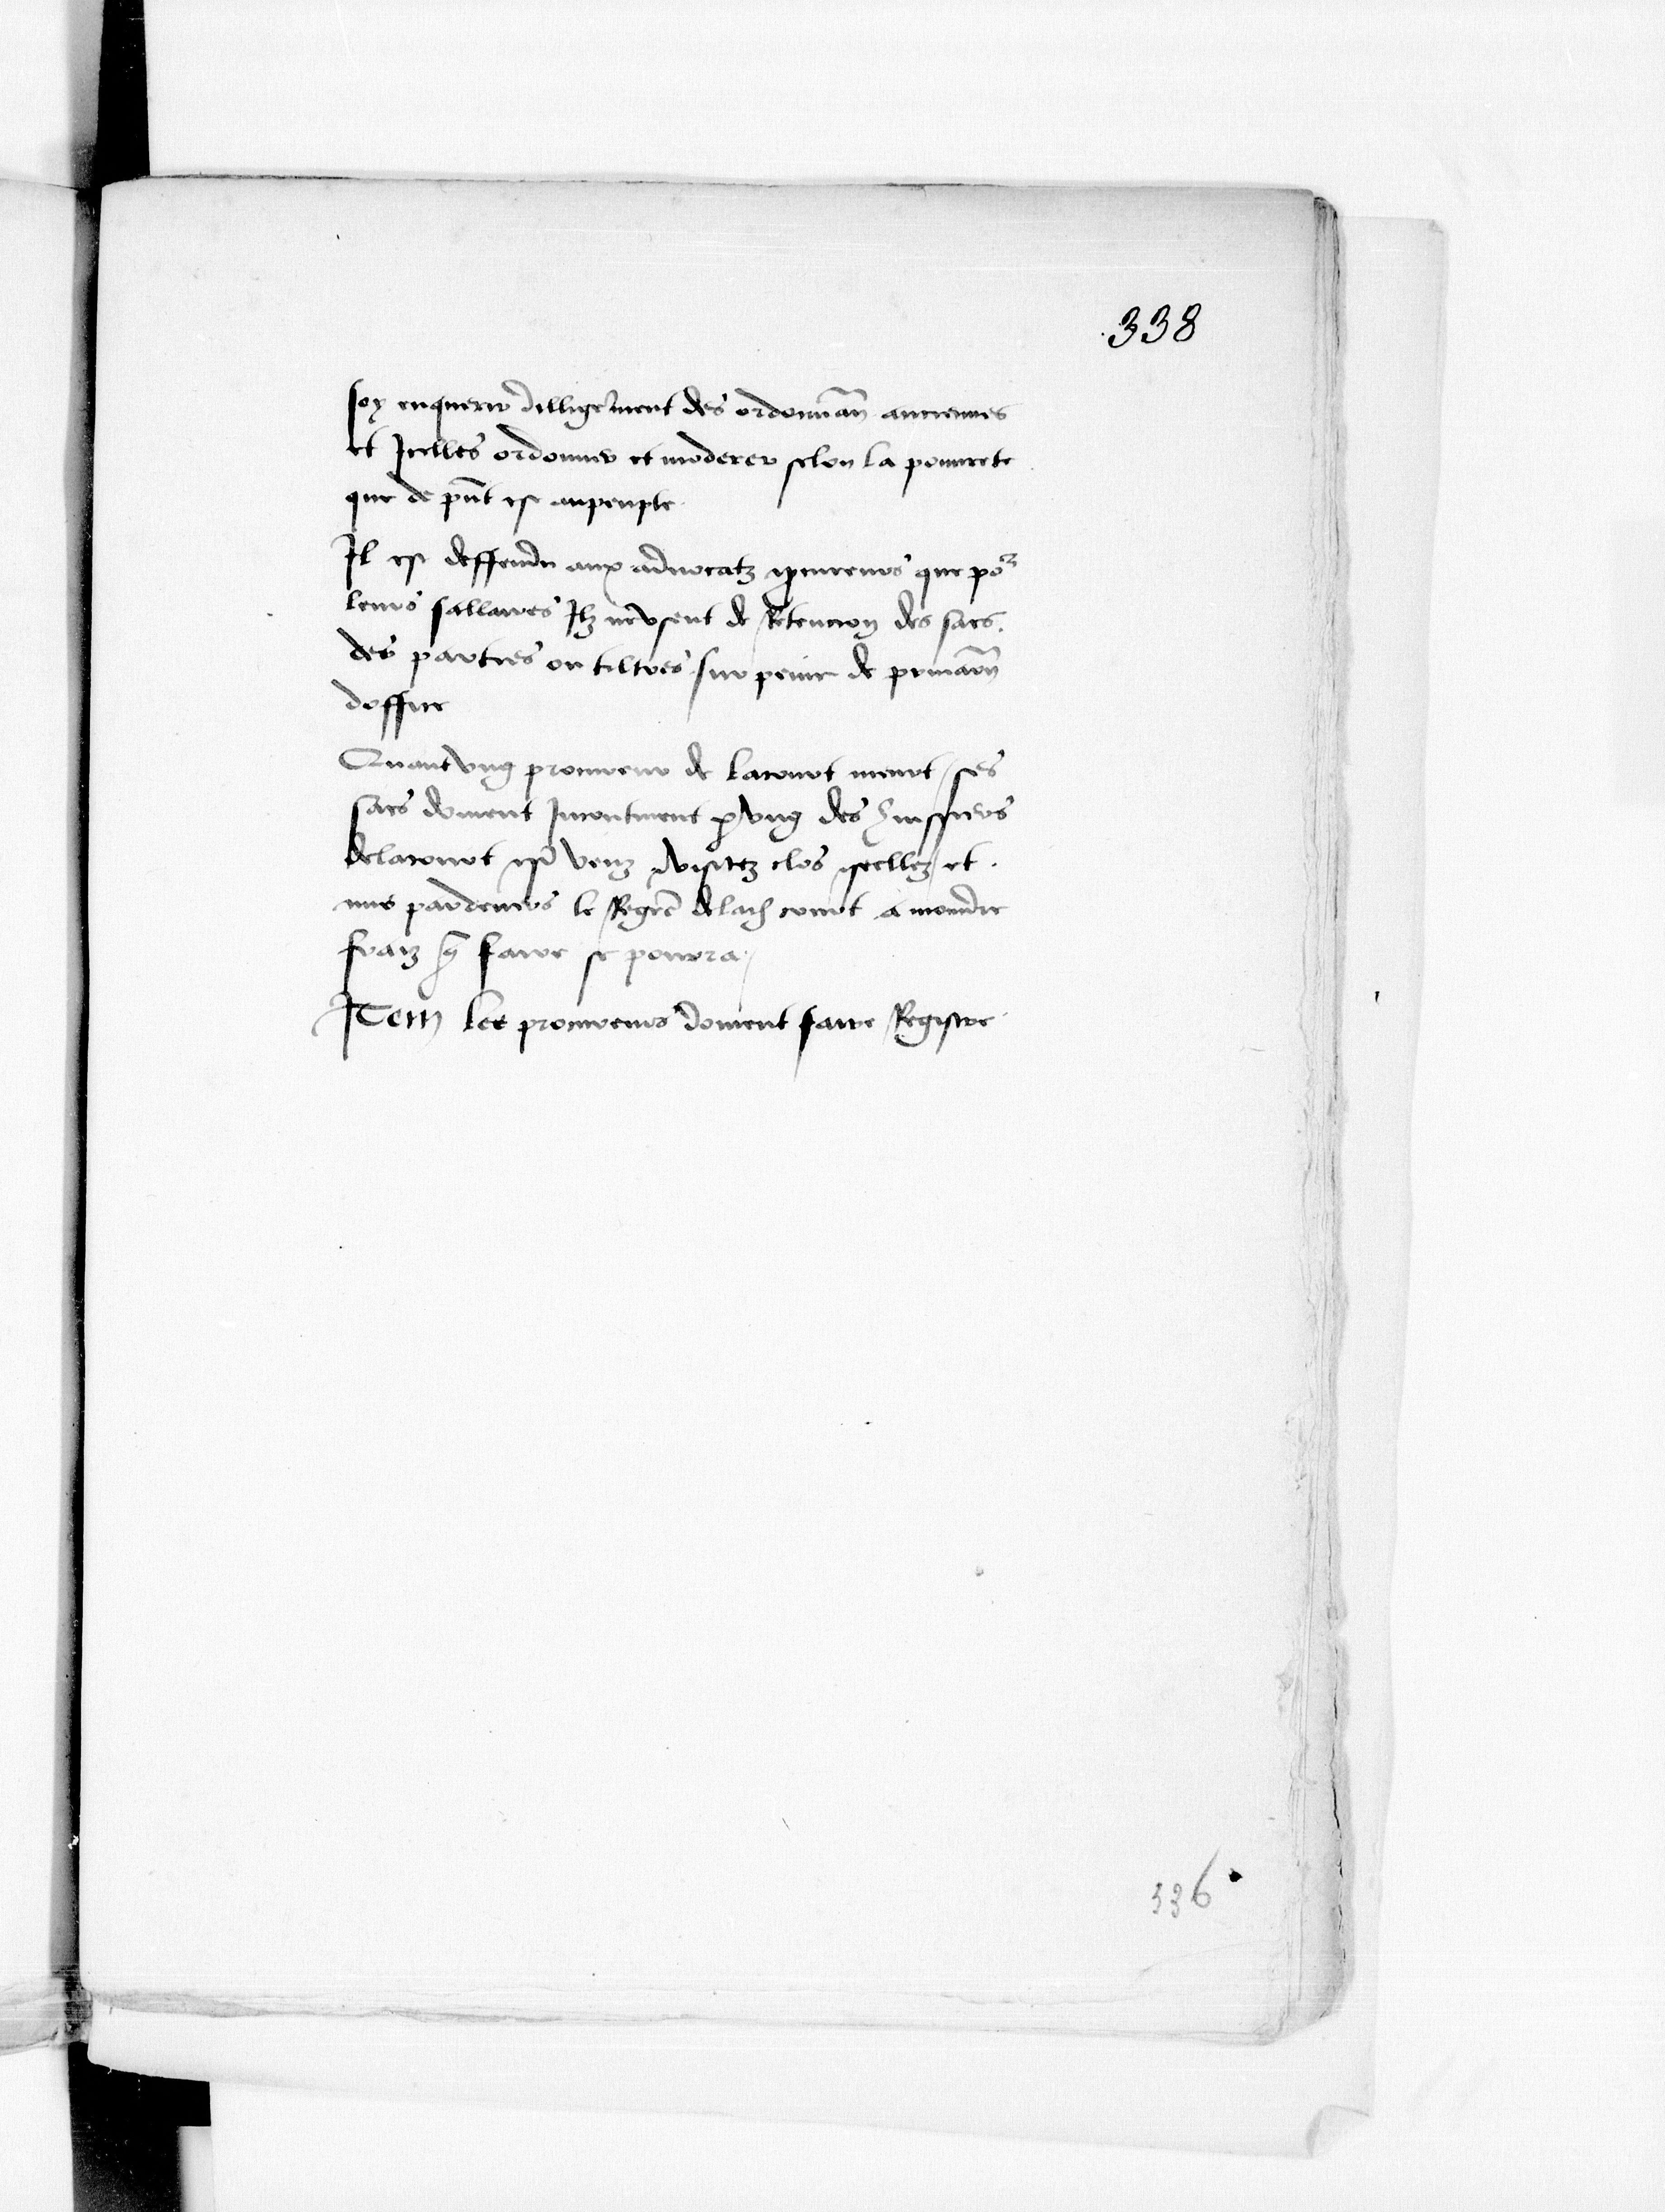 338
soy enquerir dilligement des ordonnan anciennes
et Icelles ordonner et moderer selon la pouurete
que de pnt est au peuple
Il est deffendu aux aduocatz procureurs que por
leurs sallaires Ilz ne vsent de Retencion des sacs
des parties ou tiltres sur peine de priuacon
doffice
Quant vng procureur de la court meurt ses
sacs doiuent Incontinent par vng des huissiers
de lacourt estre veuz visitez clos seellez et
mis par deuers le Regre de lad court a moindre
fraiz que faire se pourra
Item les procureurs doiuent faire Registre
336